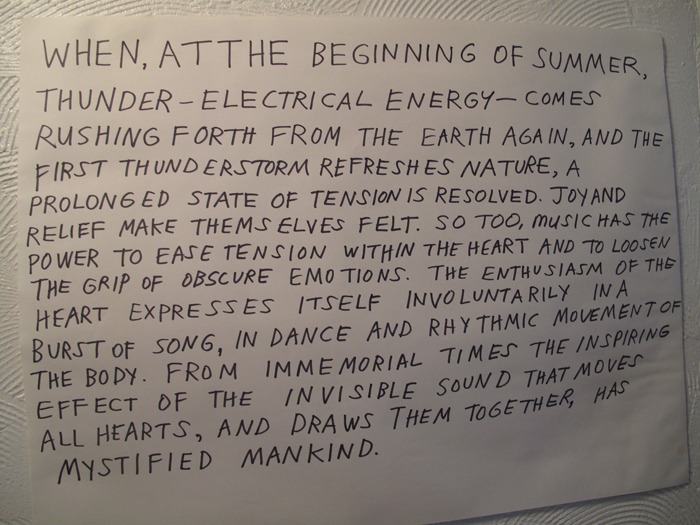 WHEN, AT THE BEGINNING OF SUMMER,
THUNDER - ELECTRICAL ENERGY - COMES
RUSHING FORTH FROM THE EARTH AGAIN, AND THE
FIRST THUNDERSTORM REFRESHES NATURE, A
PROLONGED STATE OF TENSION IS RESOLVED. JOY AND
RELIEF MAKE THEMSELVES FELT. SO TOO, MUSIC HAS THE
POWER TO EASE TENSION WITHIN THE HEART AND TO LOOSEN
THE GRIP OF OBSCURE EMOTIONS. THE ENTHUSIASM OF THE
HEART EXPRESSES ITSELF INVOLUNTARILY IN A
BURST OF SONG, IN DANCE AND RHYTHMIC MOVEMENT OF
THE BODY. FROM IMMEMORIAL TIMES THE INSPIRING
EFFECT OF THE INVISIBLE SOUND THAT MOVES
ALL HEARTS, AND DRAWS THEM TOGETHER, HAS
MYSTIFIED MANKIND.